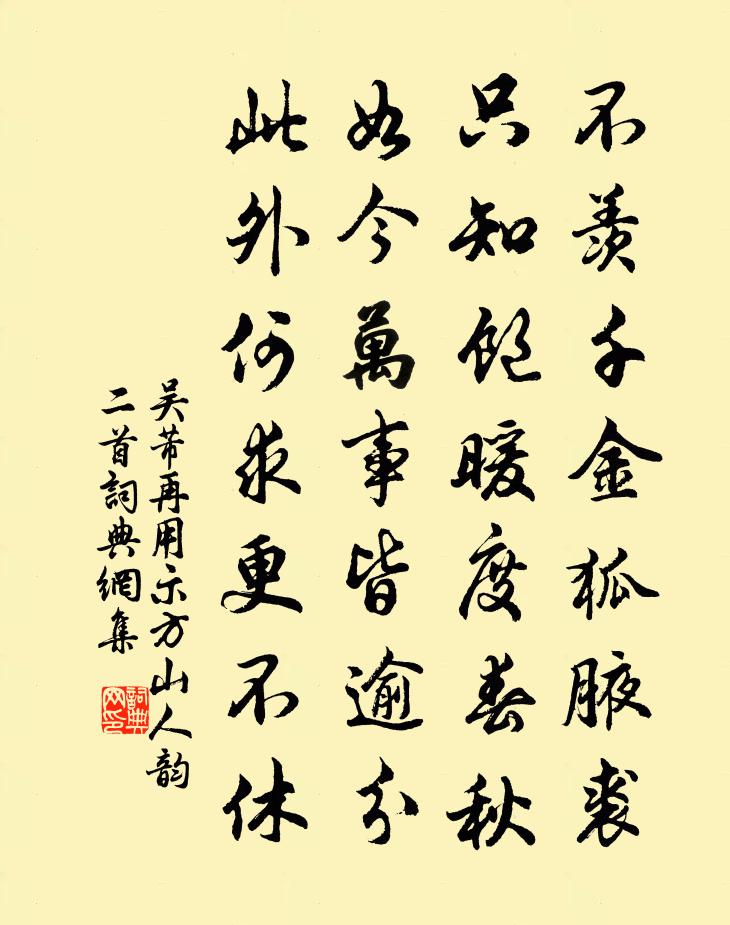 不羨千金狐腋裘
只知飽暖度春秋
如今萬事皆逾分
此外何求更不休
吴芾再用示方山人韵
二首詞典網集
詞典网印